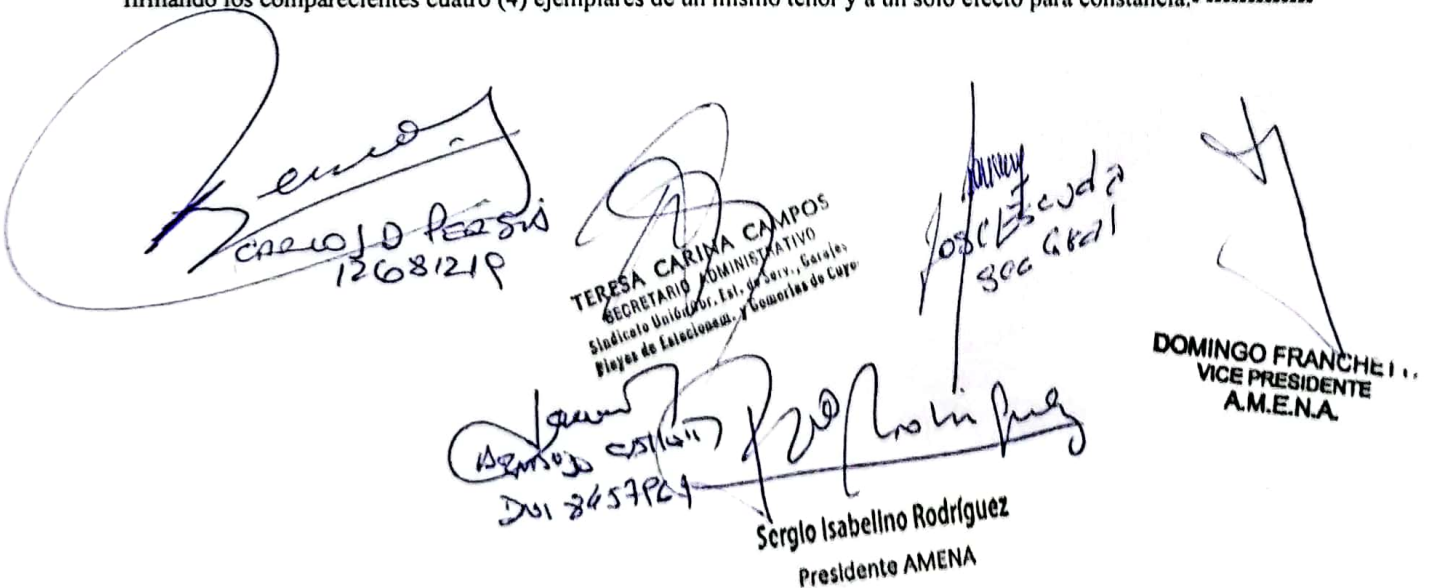 firmando los comparecientes cuatro (4) ejemplares de un mismo tenor y a un solo efecto para constancia.
12681219
TERESA CARINA CAMPOS
SECRETARIO ADMINISTRATIVO
Sindicato Unión Obr. Est. de Serv., Garajes,
Playas de Estacionam. y Gomerías de Cuyo
José Escuda
Sec Gral
DOMINGO FRANCHE
VICE PRESIDENTE
A.M.E.N.A.
Rodriguez
Sergio Isabelino Rodríguez
Presidente AMENA